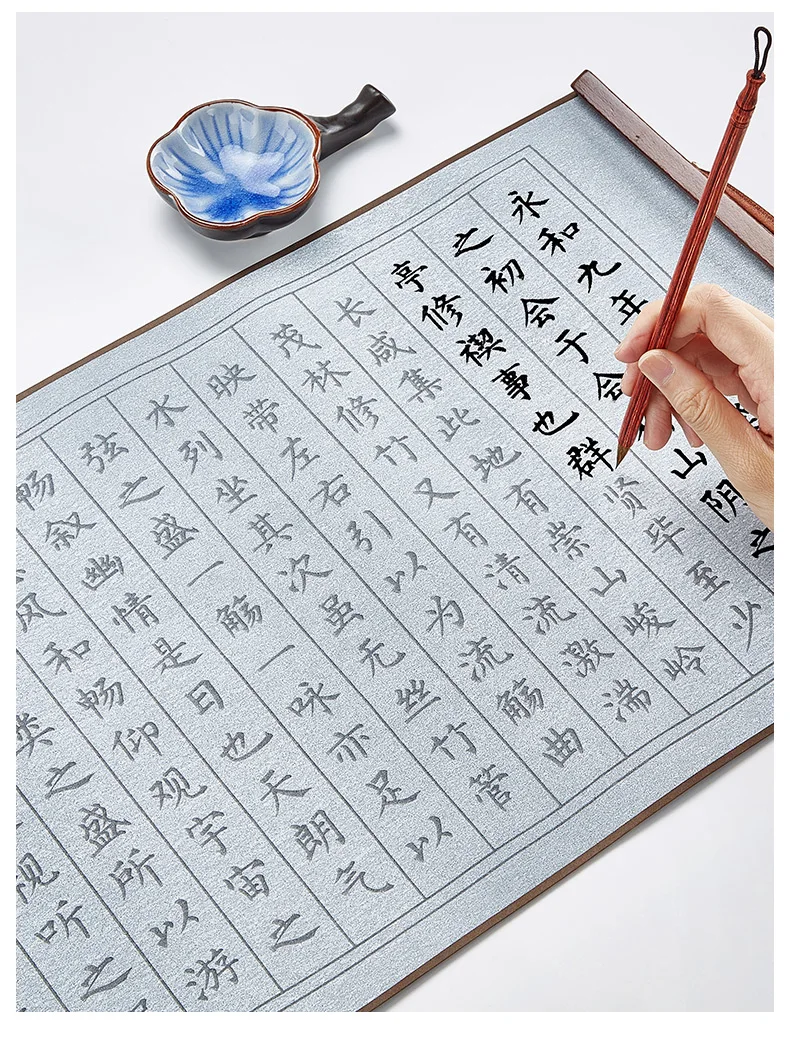 永和九年
之初会于会山阴之
亭修禊事也群贤毕至少
长咸集此地有崇山峻岭
茂林修竹又有清流激湍
映带左右引以为流觞曲
水列坐其次虽无丝竹管
弦之盛一觞一咏亦足以
畅叙幽情是日也天朗气
风和畅仰观宇宙之
类之盛所以游
视听之